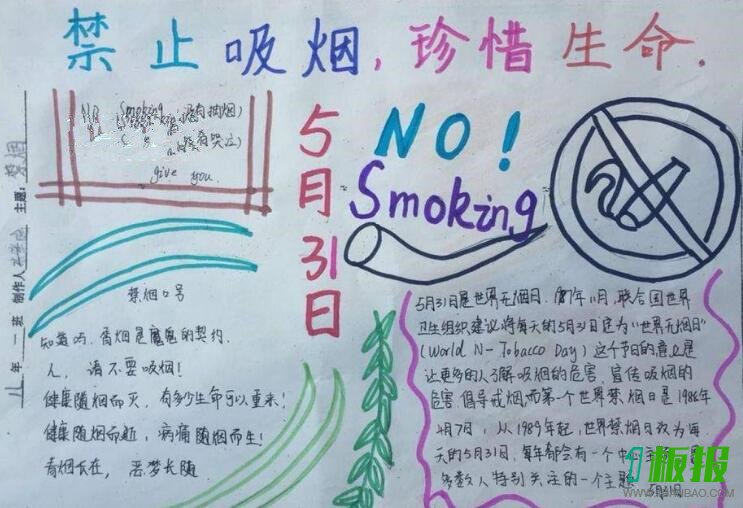 禁止吸烟,珍惜生命.
No Smoking (没有抽烟)
(没有哭泣)
give you.
5月31日
NO!
Smoking
主题: 禁烟
制作人
八年一班
禁烟口号
知道吗,香烟是魔鬼的契约.
人, 请不要吸烟!
健康随烟而灭,有多少生命可以重来!
健康随烟而逝,病痛随烟而生!
香烟长在, 恶梦长随.
5月31日是世界无烟日. 1987年11月,联合国世界
卫生组织建议将每天的5月31日定为"世界无烟日"
(World N- Tobacco Day) 这个节日的意义是
让更多的人了解吸烟的危害,宣传吸烟的
危害.倡导戒烟.而第一个世界禁烟日是1988年
4月7日, 从1989年起,世界禁烟日改为每
天的5月31日,每年都会有一个中
多数人特别关注的一个主题. 5月31日
9板报
WWW.9BANBAO.COM